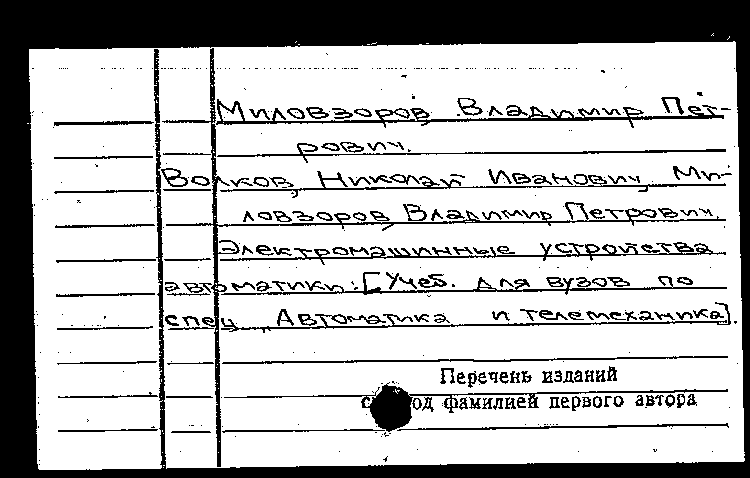 Миловзоров, Владимир Пет-
рович.
Волков, Николай Иванович, Ми-
ловзоров, Владимир Петрович.
Электромашинные устройства
автоматики: [Учеб. для вузов по
спец. Автоматика и телемеханика].
Перечень изданий
под фамилией первого автора